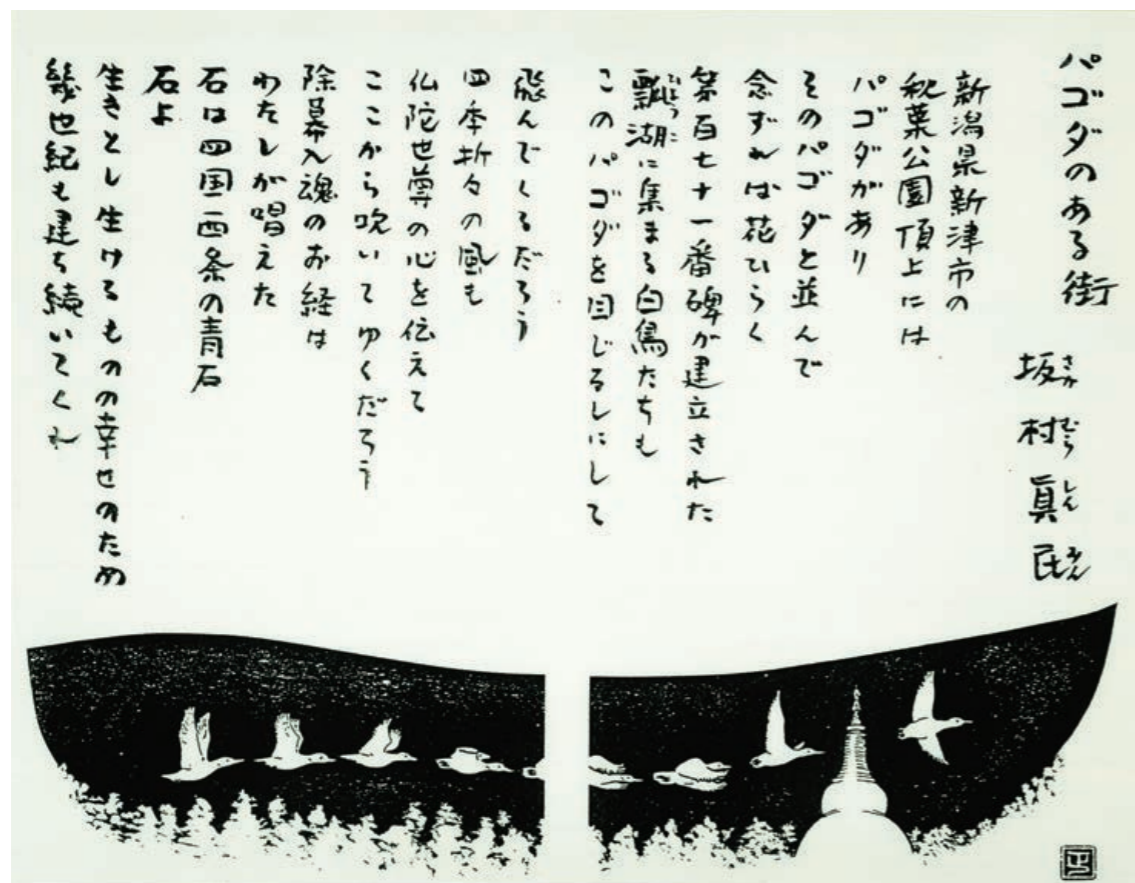 パゴダのある街
坂村眞民
さかむらしんみん
新潟県新津市の
秋葉公園頂上には
パゴダがあり
そのパゴダと並んで
念ずれば花ひらく
第百七十一番碑が建立された
瓢湖に集まる白鳥たちも
ひょうこ
このパゴダを目じるしにして
飛んでくるだろう
四季折々の風も
仏陀世尊の心を伝えて
ここから吹いてゆくだろう
除幕入魂のお経は
わたしが唱えた
石は四国西条の青石
石よ
生きとし生けるものの幸せのため
幾世紀も建ち続いてくれ